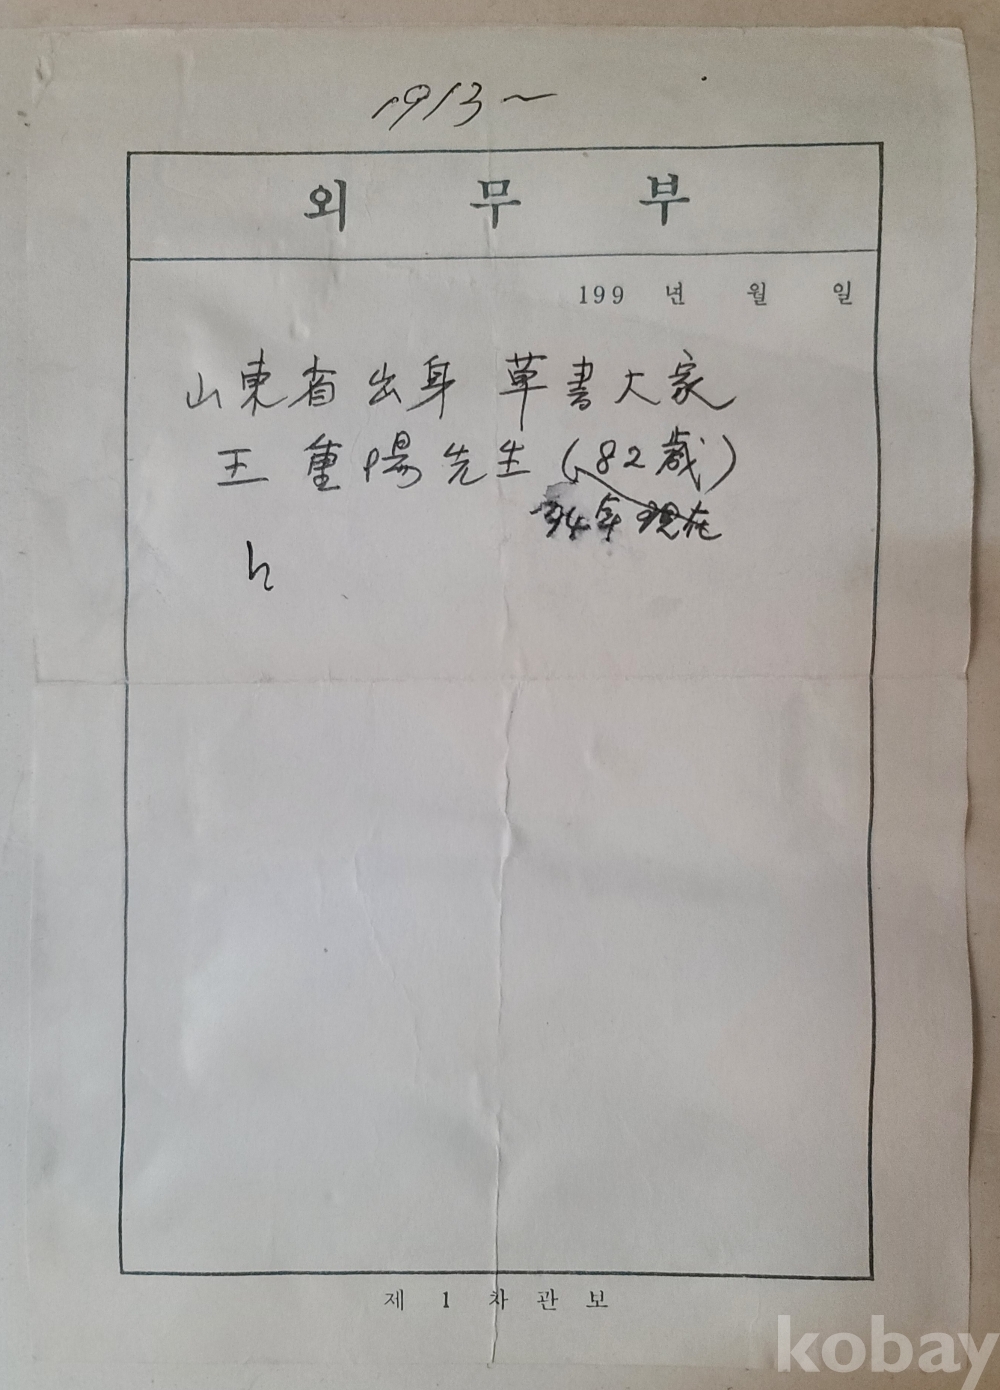 1913~
외 무 부
199 년 월 일
山東省 出身 草書大家
王 重陽 先生 (82歲)
94年 現在
제 1 차 관 보
kobay